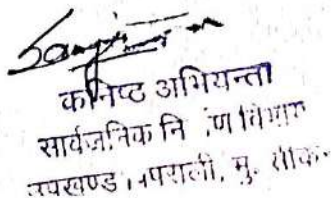 कनिष्ठ अभियन्ता
सार्वजनिक नि णि विभाग
उपखण्ड पराली, मु. सीकर